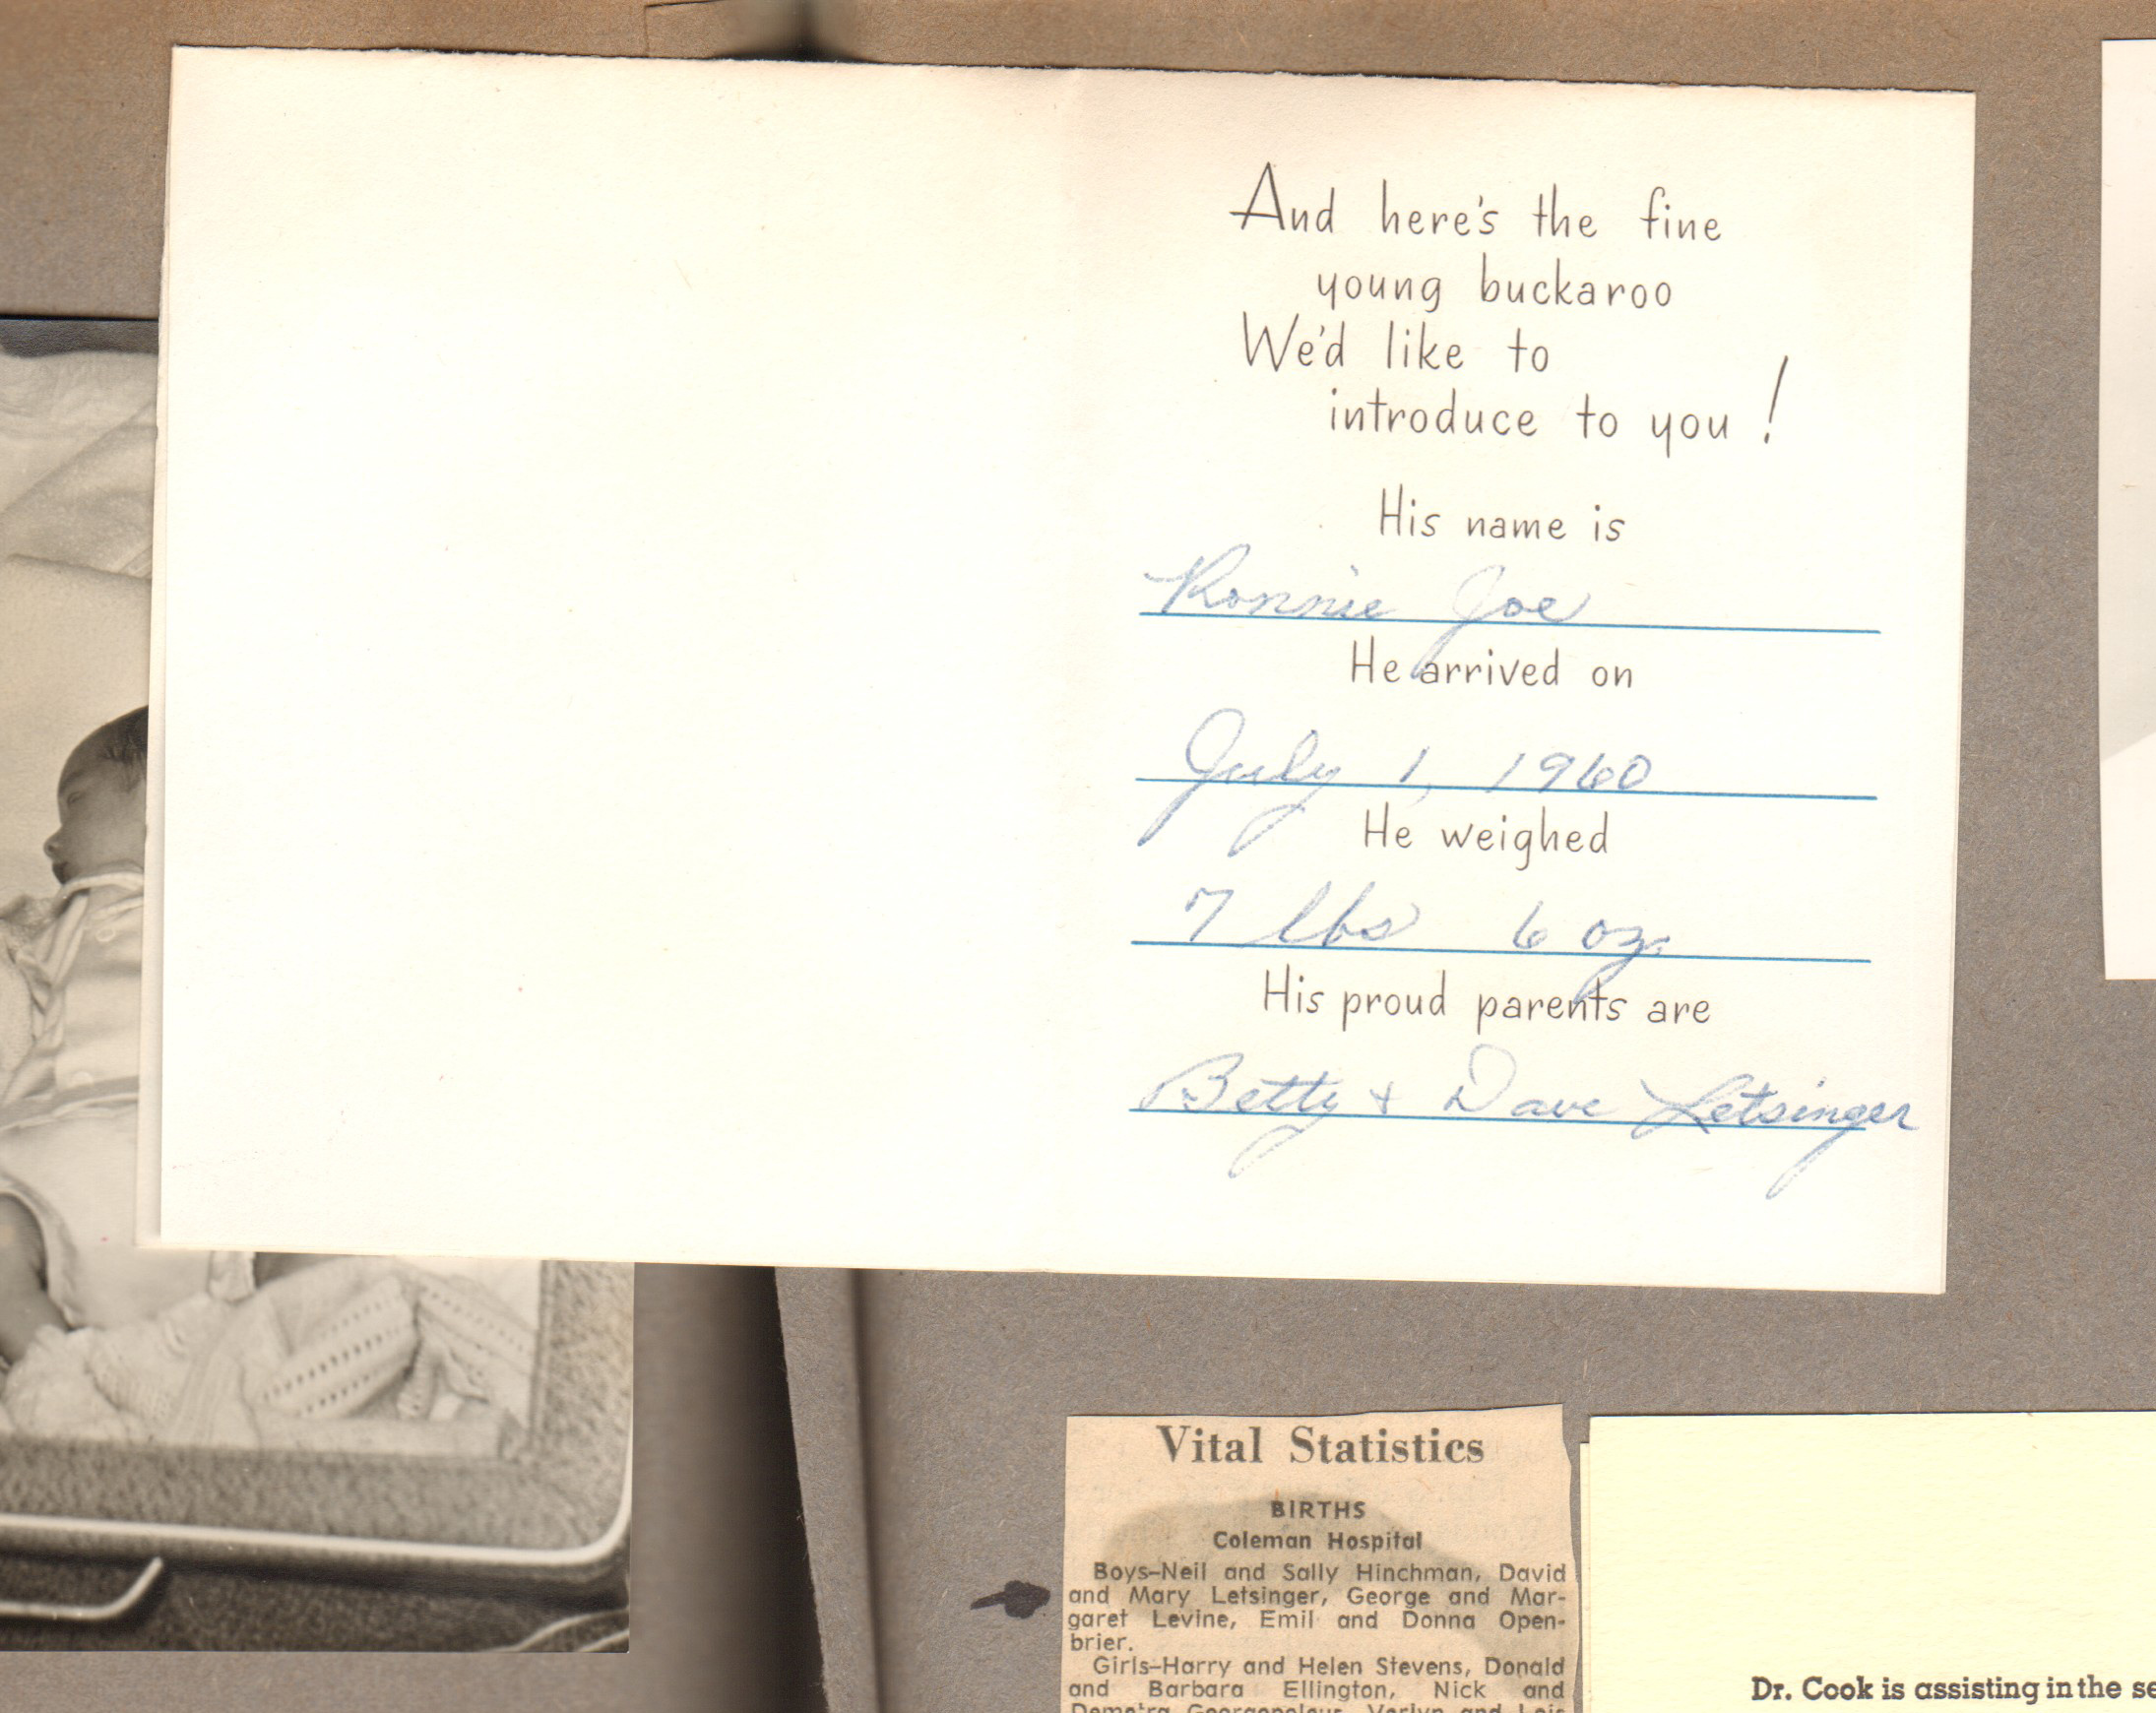 And here's the fine
young buckaroo
We'd like to
introduce to you!
His name is
Ronnie Joe
He arrived on
July 1, 1960
He weighed
7 lbs 6 oz.
His proud parents are
Betty + Dave Letsinger
Vital Statistics
BIRTHS
Coleman Hospital
Boys–Neil and Sally Hinchman, David
and Mary Letsinger, George and Mar-
garet Levine, Emil and Donna Open-
brier.
Girls–Harry and Helen Stevens, Donald
and Barbara Ellington, Nick and
Demetra Georgopolous, Verlyn and Lois
Dr. Cook is assisting in the se